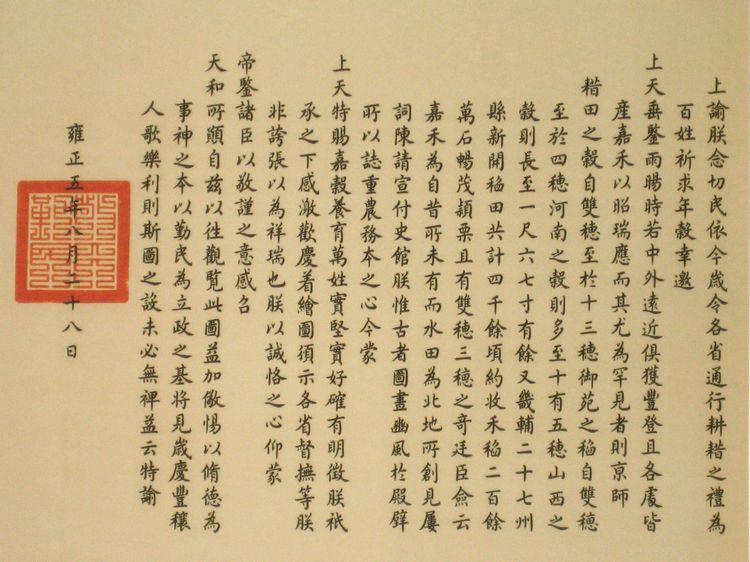 上諭朕念切民依今歲令各省通行耕耤之禮為
百姓祈求年穀幸邀
上天垂鑒雨暘時若中外遠近俱獲豐登且各處皆
產嘉禾以昭瑞應而其尤為罕見者則京師
耤田之穀自雙穗至於十三穗御苑之稻自雙穗
至於四穗河南之穀則多至十有五穗山西之
穀則長至一尺六七寸有餘又畿輔二十七州
縣新開稻田共計四千餘頃約收禾稻二百餘
萬石暢茂穎栗且有雙穗三穗之奇廷臣僉云
嘉禾為自昔所未有而水田為北地所創見屢
詞陳請宣付史館朕惟古者圖畫豳風於殿壁
所以誌重農務本之心今蒙
上天特賜嘉穀養育萬姓實堅實好確有明徵朕祇
承之下感激歡慶着繪圖頒示各省督撫等朕
非誇張以為祥瑞也朕以誠恪之心仰蒙
帝鑒諸臣以敬謹之意感召
天和所願自茲以往觀覽此圖益加儆惕以脩德為
事神之本以勤民為立政之基將見歲慶豐穰
人歌樂利則斯圖之設未必無裨益云特諭
雍正五年八月二十八日